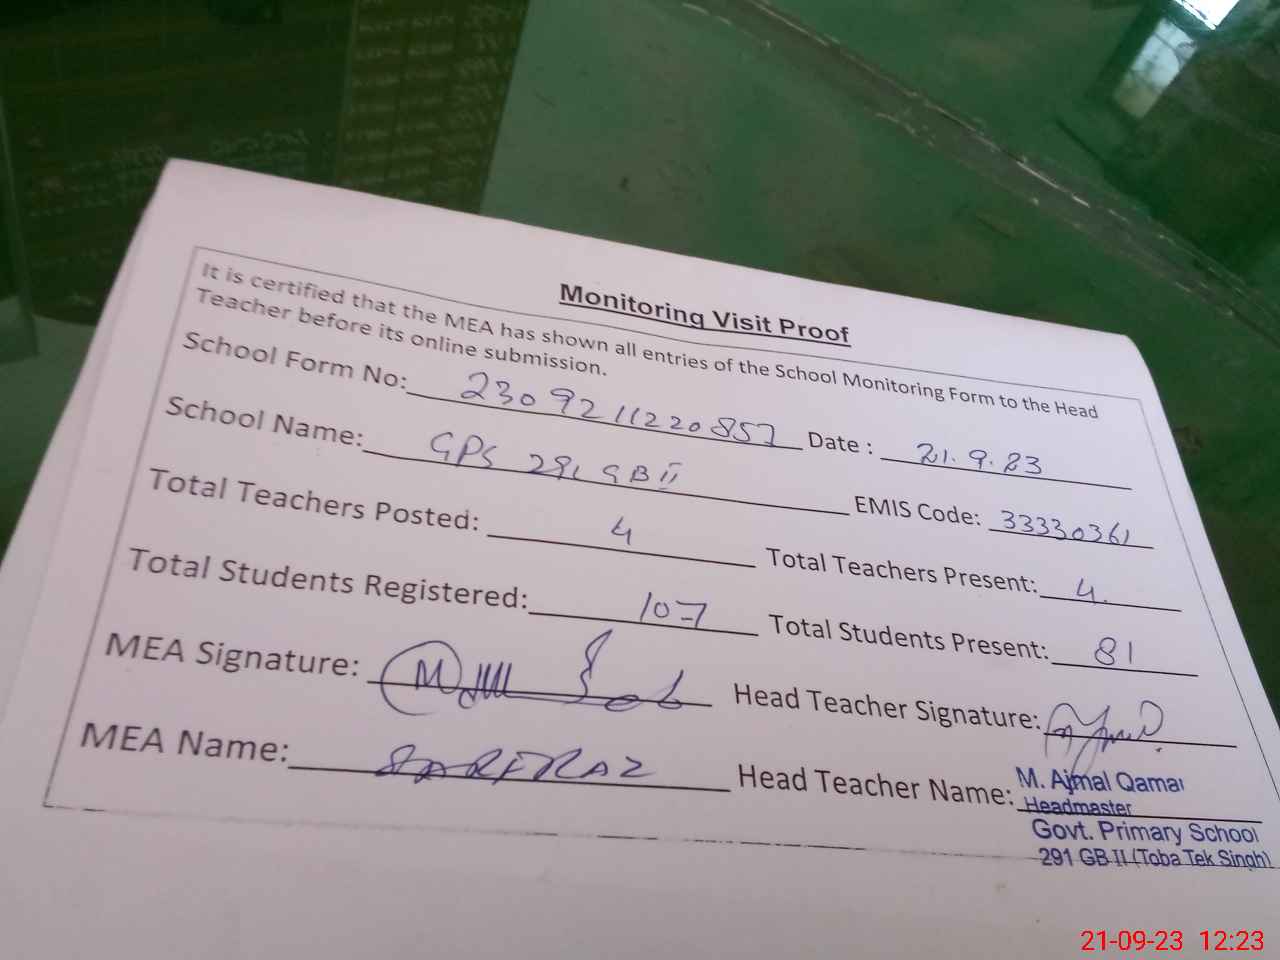 Monitoring Visit Proof
It is certified that the MEA has shown all entries of the School Monitoring Form to the Head
Teacher before its online submission.
School Form No: 2309211220857 Date : 21.9.23
School Name: GPS 291 GB II EMIS Code: 33330361
Total Teachers Posted: 4 Total Teachers Present: 4
Total Students Registered: 107 Total Students Present: 81
MEA Signature: Head Teacher Signature:
MEA Name: SARFRAZ Head Teacher Name: M. Ajmal Qamar
Headmaster
Govt. Primary School
291 GB II (Toba Tek Singh)
21-09-23 12:23